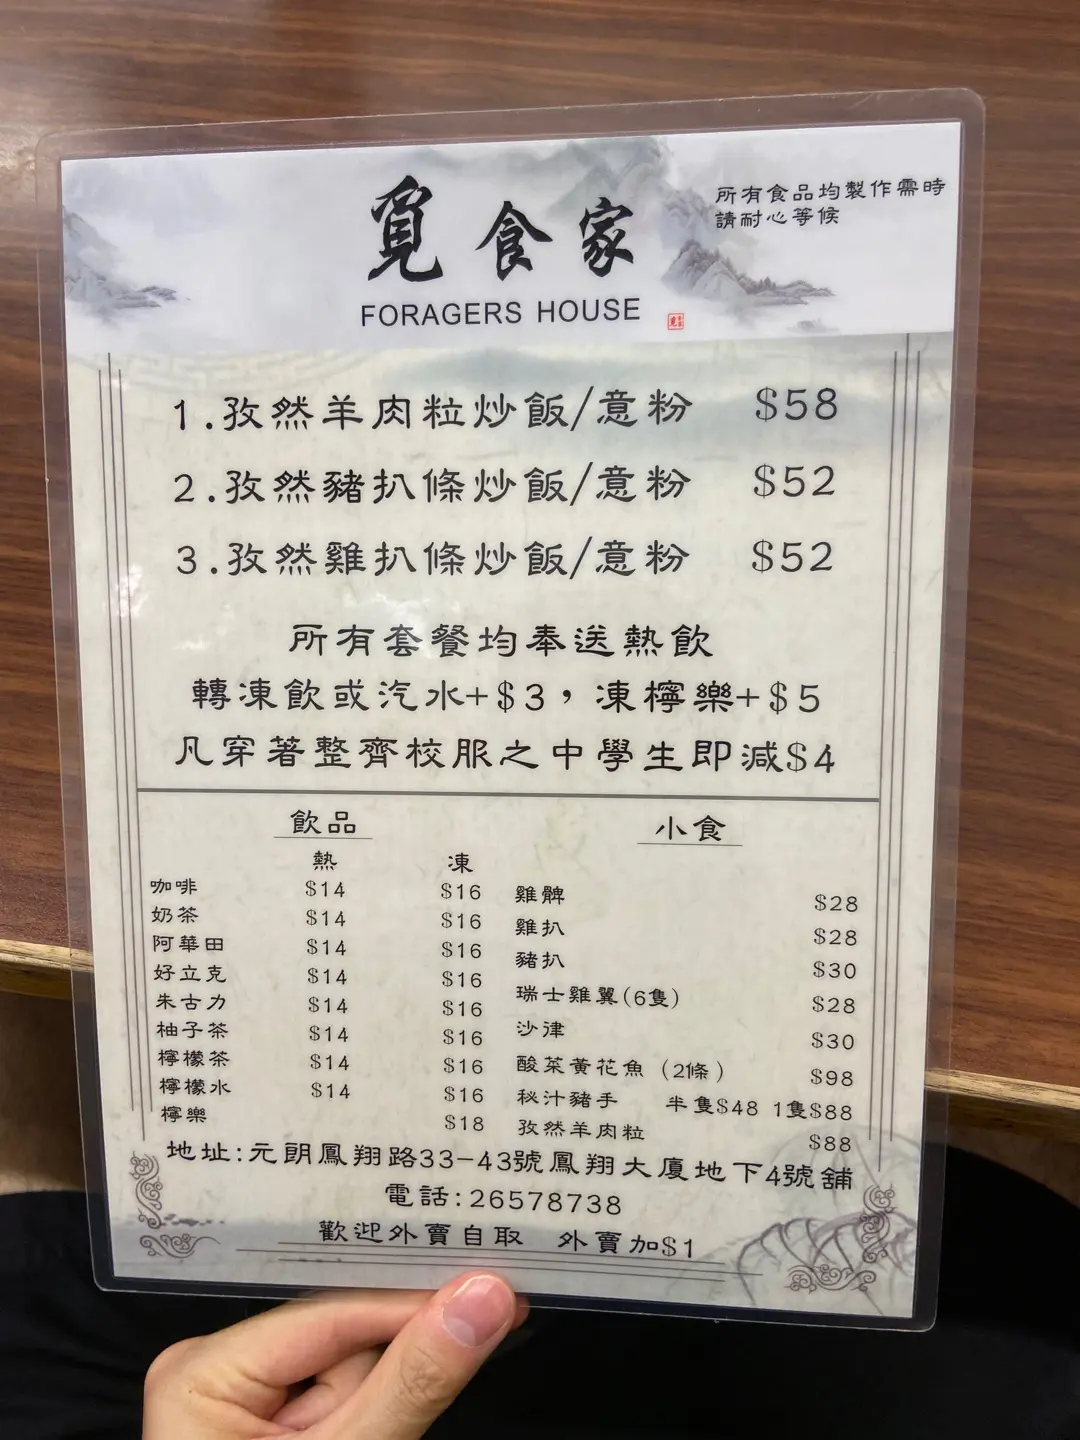 覓食家
FORAGERS HOUSE
所有食品均製作需時
請耐心等候
1.孜然羊肉粒炒飯/意粉 $58
2.孜然豬扒條炒飯/意粉 $52
3.孜然雞扒條炒飯/意粉 $52
所有套餐均奉送熱飲
轉凍飲或汽水+$3，凍檸樂+$5
凡穿著整齊校服之中學生即減$4
飲品
熱 凍
咖啡 $14 $16
奶茶 $14 $16
阿華田 $14 $16
好立克 $14 $16
朱古力 $14 $16
柚子茶 $14 $16
檸檬茶 $14 $16
檸檬水 $14 $16
檸樂 $18
小食
雞髀 $28
雞扒 $28
豬扒 $30
瑞士雞翼(6隻) $28
沙律 $30
酸菜黃花魚 (2條) $98
秘汁豬手 半隻$48 1隻$88
孜然羊肉粒 $88
地址:元朗鳳翔路33-43號鳳翔大廈地下4號舖
電話:26578738
歡迎外賣自取 外賣加$1